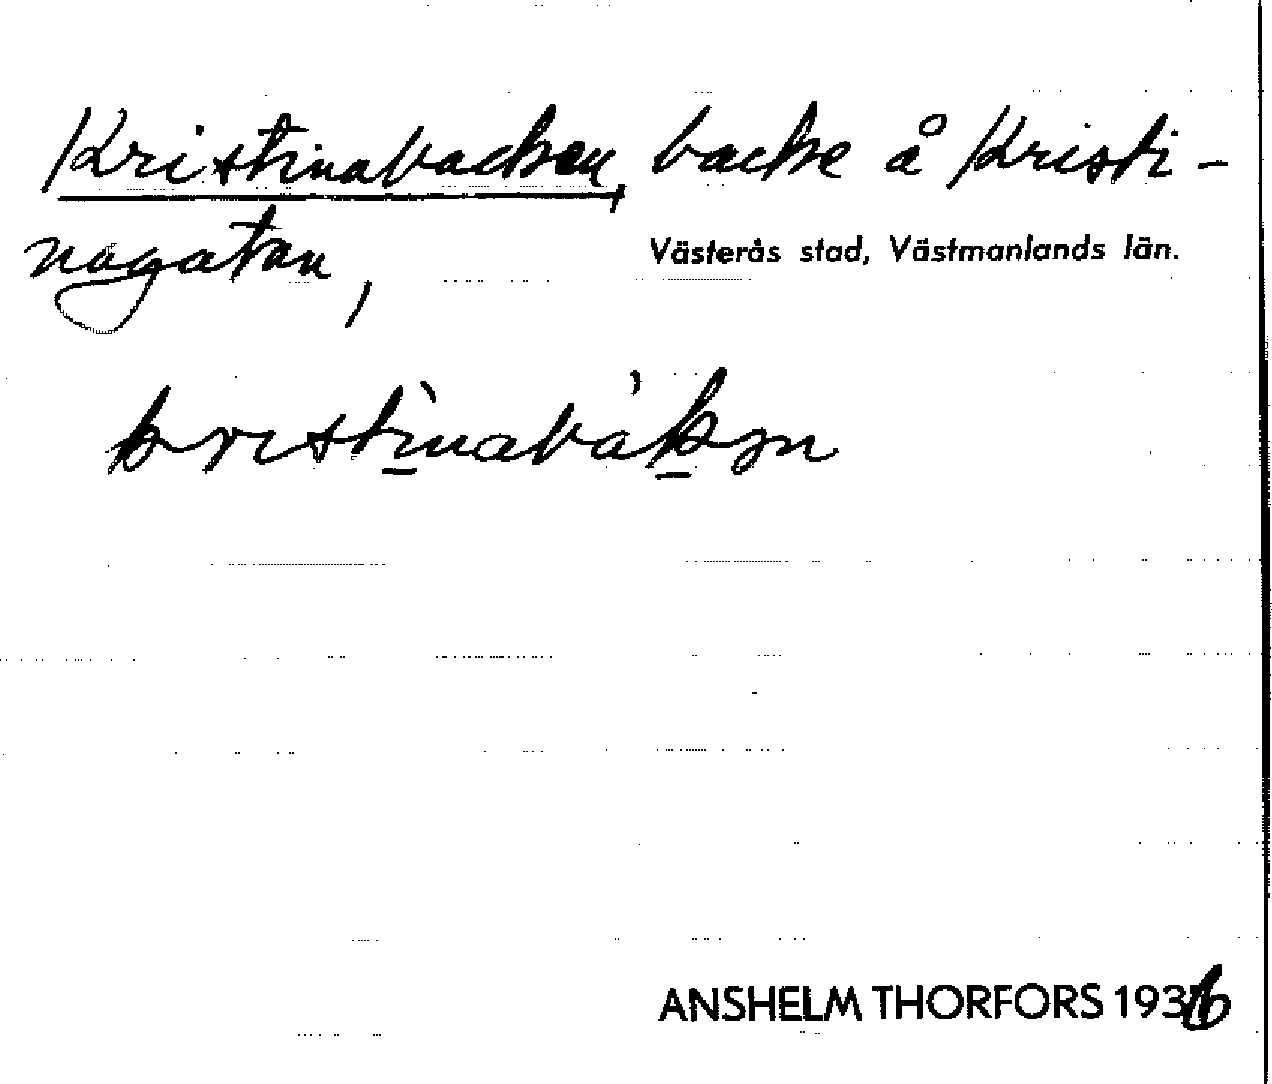 Kristinabacken, backe å Kristi-
nagatan,
Västerås stad, Västmanlands län.
kristìnabákən
ANSHELM THORFORS 1936